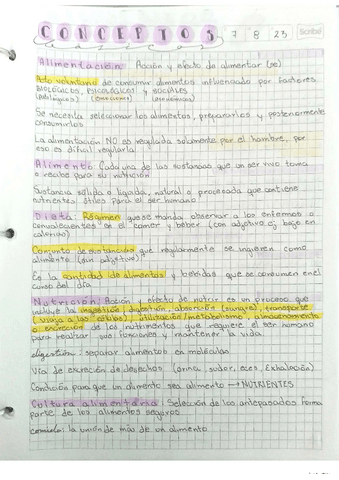 CONCEPTOS 7 8 23 Scribe
Alimentación: Acción y efecto de alimentar (se)
Acto voluntario de consumir alimentos influenciado por factores
BIOLÓGICOS, PSICOLÓGICOS y SOCIALES
(emociones)
Se necesita seleccionar los alimentos, prepararlos y posteriormente
consumirlos
La alimentación NO es regulada solamente por el hombre, por
eso es difícil regularla
Alimento: Cada una de las sustancias que un ser vivo toma
o recibe para su nutrición
Sustancia sólida o líquida, natural o procesada que contiene
nutrientes útiles para el ser humano
Dieta: Régimen que se manda observar a los enfermos o
convalecientes en el comer y beber (con adjetivo ej. bajo en
calorías)
Conjunto de sustancias que regularmente se ingieren como
alimento (sin adjetivo)
Es la cantidad de alimentos y bebidas que se consumen en el
curso del día
Nutrición: Acción y efecto de nutrir es un proceso que
incluye la ingestión, digestión, absorción (sangre), transporte
(viaja a las células), utilización/metabolismo, almacenamiento
o excreción de los nutrimentos que requiere el ser humano
para realizar sus funciones y mantener la vida
digestión: separar alimentos en moléculas
Vía de excreción de desechos (orina, sudor, eces, exhalación)
Condición para que un alimento sea alimento → NUTRIENTES
Cultura alimentaria: Selección de los antepasados forma
parte de los alimentos seguros
comida: la unión de más de un alimento